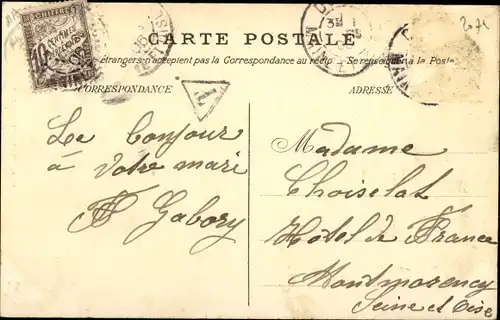 CARTE POSTALE
étrangers n'acceptent pas la Correspondance au recto - Se renseigner à la Poste
CORRESPONDANCE
ADRESSE
2071
CHIFFRE
10
T
Le bonjour
à votre mari
Gabory
Madame
Choiselat
Hôtel de France
Montmorency
Seine et Oise